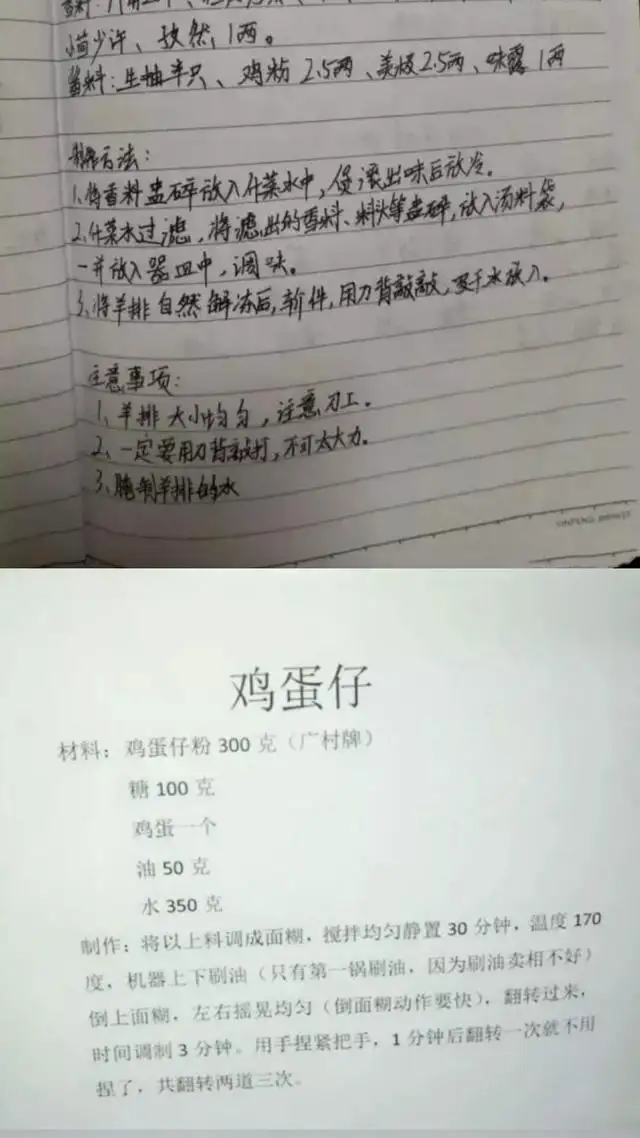 小茴少许、孜然1两。
酱料：生抽半只、鸡粉2.5两、美极2.5两、味露1两
制作方法：
1、将香料盅碎放入什菜水中，煲滚出味后放冷。
2、什菜水过滤，将滤出的香料、料头等盅碎，放入汤料袋，
一并放入器皿中，调味。
3、将羊排自然解冻后，斩件，用刀背敲敲，吸干水放入。
注意事项：
1、羊排大小均匀，注意刀工。
2、一定要用刀背敲打，不可太大力。
3、腌制羊排的水
鸡蛋仔
材料：鸡蛋仔粉 300 克（广村牌）
糖 100 克
鸡蛋一个
油 50 克
水 350 克
制作：将以上料调成面糊，搅拌均匀静置 30 分钟，温度 170
度，机器上下刷油（只有第一锅刷油，因为刷油卖相不好）
倒上面糊，左右摇晃均匀（倒面糊动作要快），翻转过来，
时间调制 3 分钟。用手捏紧把手，1 分钟后翻转一次就不用
捏了，共翻转两道三次。